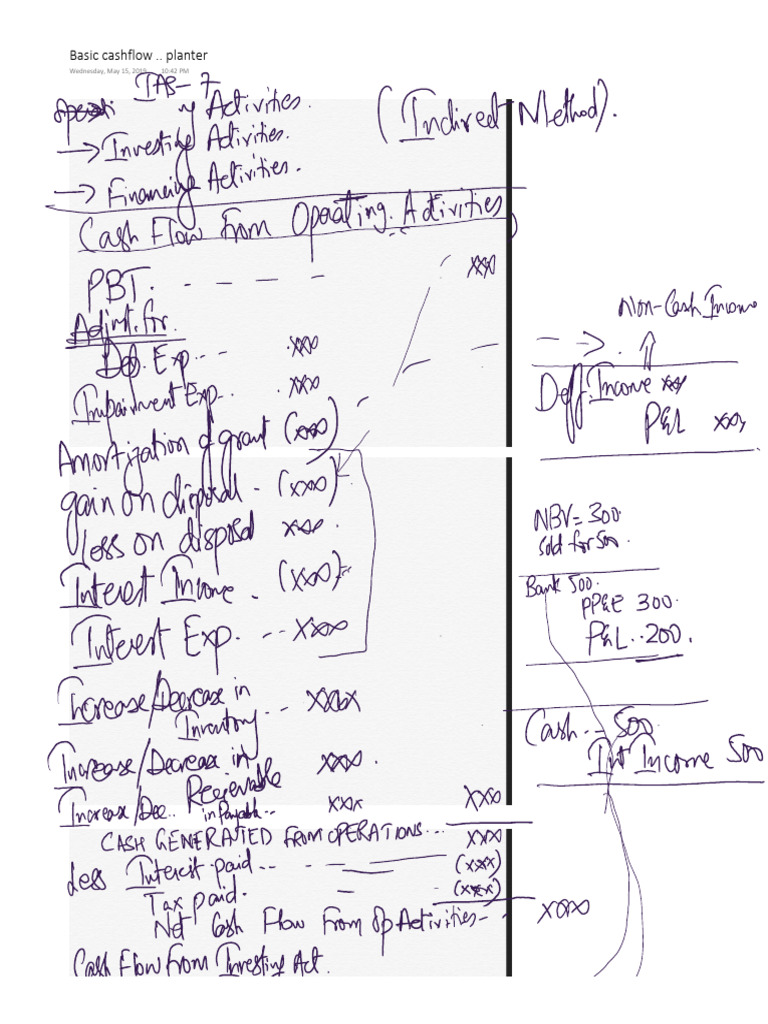 Basic cashflow .. planter
Wednesday, May 15, 2019 10:42 PM
IAS-7
Activities.
(Indirect Method).
→ Investing Activities.
→ Financing Activities.
Cash Flow from Operating Activities
PBT. - - - - xxx
Adjmt. for.
Dep. Exp... - xxx
Impairment Exp.. . xxx
Amortization of grant (xxx)
gain on disposal - (xxx)
loss on disposal xxx.
Interest Income. - (xxx)
Interest Exp. - - xxx
Increase/Decrease in
Inventory - - xxxx
Increase/Decrease in
Receivable xxx.
Increase/Dec.. in Payable.. xxx xxx
CASH GENERATED FROM OPERATIONS... xxx
Less Interest paid.. - (xxx)
Tax paid. - (xxx)
Net Cash Flow From Op Activities - - xxxx
Cash Flow From Investing Act.
Non-Cash Income
- - → . ⇑
Deff. Income xxx
P&L xxx
NBV = 300
Sold for 500.
Bank 500.
PP&E 300.
P&L..200.
Cash.. 500.
Int Income 500